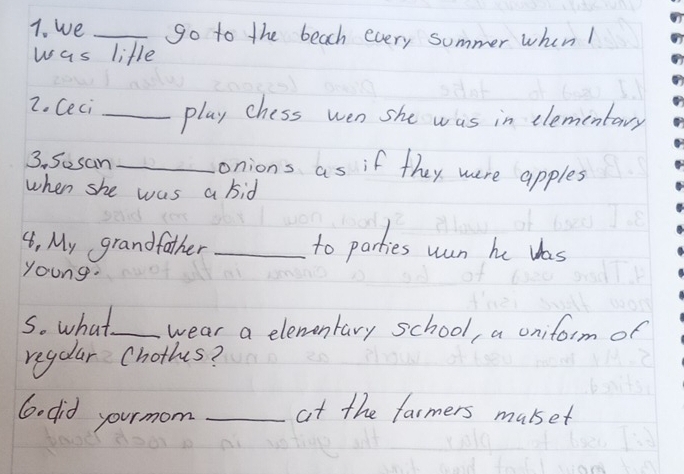 1. We ____ go to the beach every summer when I
was little
2. Ceci ____ play chess wen she was in elementary
3. Susan ____ onions as if they were apples
when she was a kid
4. My grandfather ____ to parties wen he was
young.
5. what ____ wear a elementary school, a uniform of
regular Chothes?
6. did your mom ____ at the farmers market